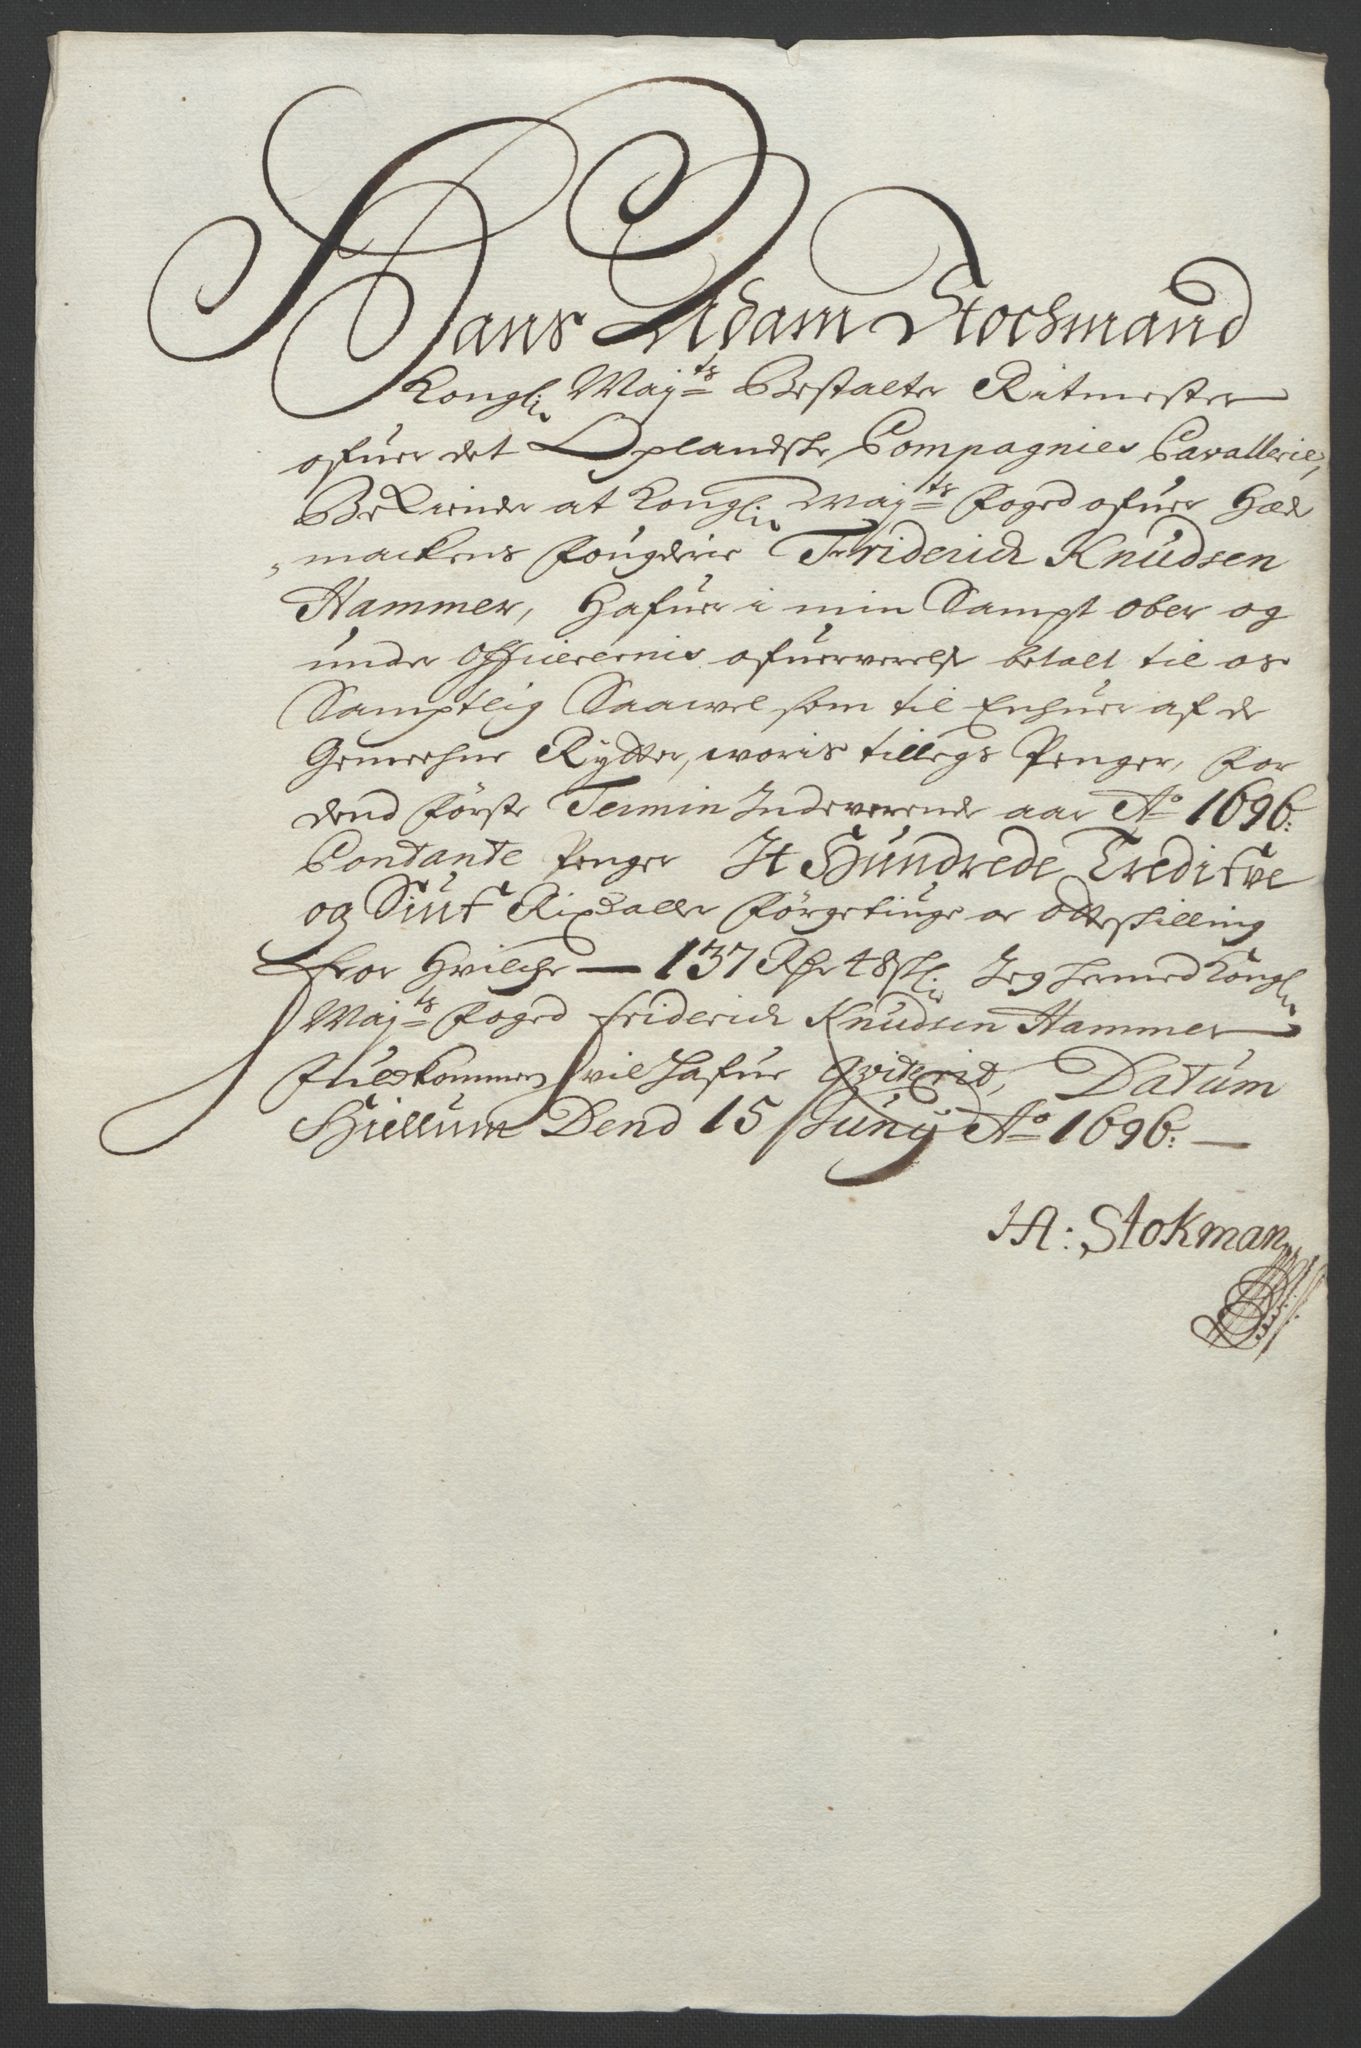 Hans Adam Stochmand
Kongl: Maytz Bestalter Ritmester
ofuer det Oplandske Compagnies Cavallerie,
BeKiender at Kongl: Maytz foged ofuer Hæde
„mackens fougderie Friderich Knudsen
Hammer, Hafuer i min Sampt ober og
under Officerernis ofuerverelse betalt til os
Samptlig Saawel som til Enhuer af de
Gemeehne Rytter, woris tillegs Penger, for
dend første Termin Indeverende aar Ao 1696:
Contante Penger It Hundrede Tredisve
og Siuf Rixdaller førgetiuge oc Otte skilling
for Hvilche — 137 Rdr 48 sk: Jeg hermed Kongl:
Maytz foged friderich Knudsen Hammer
fuldkommen vil hafue Qviterid, Datum
Hiellum Dend 15 Junij Ao 1696: —
HA: Stokman